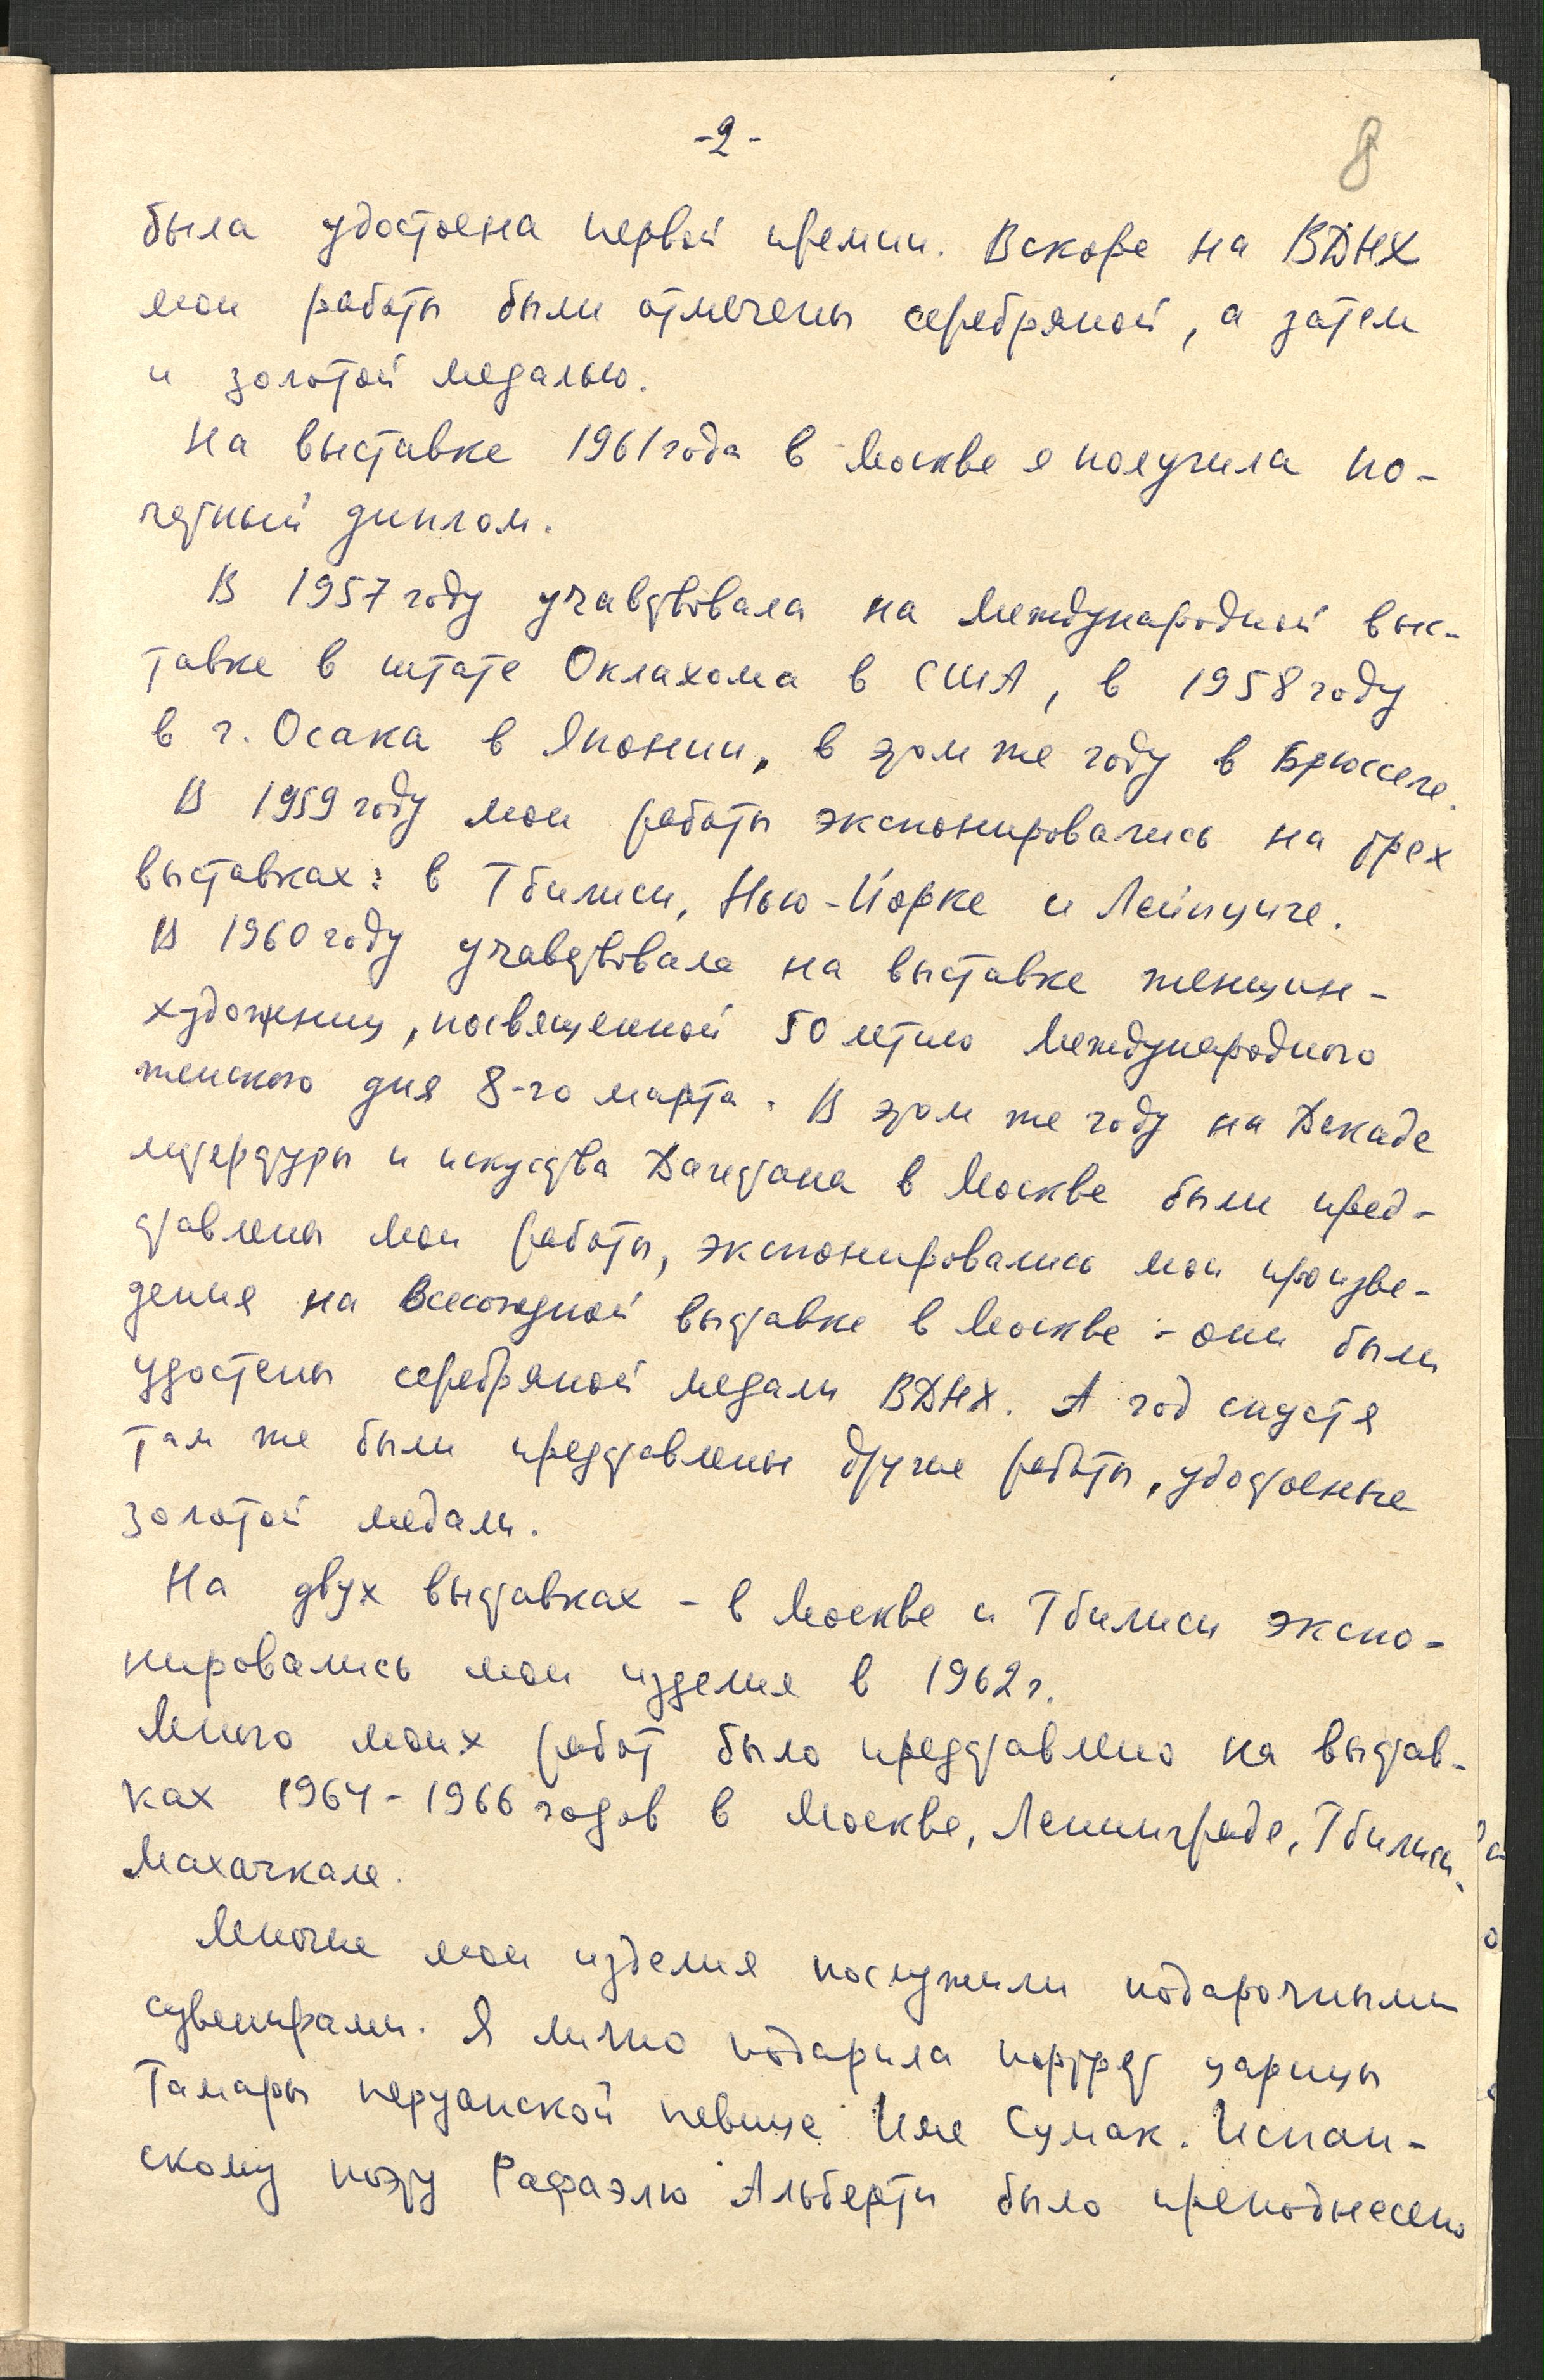 -2-
8
была удостоена первой премии. Вскоре на ВДНХ
мои работы были отмечены серебряной, а затем
и золотой медалью.
На выставке 1961 года в Москве я получила по-
четный диплом.
В 1957 году учавствовала на Международной выс-
тавке в штате Оклахома в США, в 1958 году
в г. Осака в Японии, в этом же году в Брюсселе.
В 1959 году мои работы экспонировались на трех
выставках: в Тбилиси, Нью-Йорке и Лейпциге.
В 1960 году учавствовала на выставке женщин-
художниц, посвященной 50 летию Международного
женского дня 8-го марта. В этом же году на Декаде
литературы и искусства Дагестана в Москве были пред-
ставлены мои работы, экспонировались мои произве-
дения на Всесоюзной выставке в Москве - они были
удостены серебряной медали ВДНХ. А год спустя
там же были представлены другие работы, удостоенные
золотой медали.
На двух выставках - в Москве и Тбилиси экспо-
нировались мои изделия в 1962 г.
Много моих работ было представлено на выстав-
ках 1964-1966 годов в Москве, Ленинграде, Тбилиси,
Махачкале.
Многие мои изделия послужили подарочными
сувенирами. Я лично подарила портрет царицы
Тамары перуанской певице Име Сумак. Испан-
скому поэту Рафаэлю Альберти было преподнесено